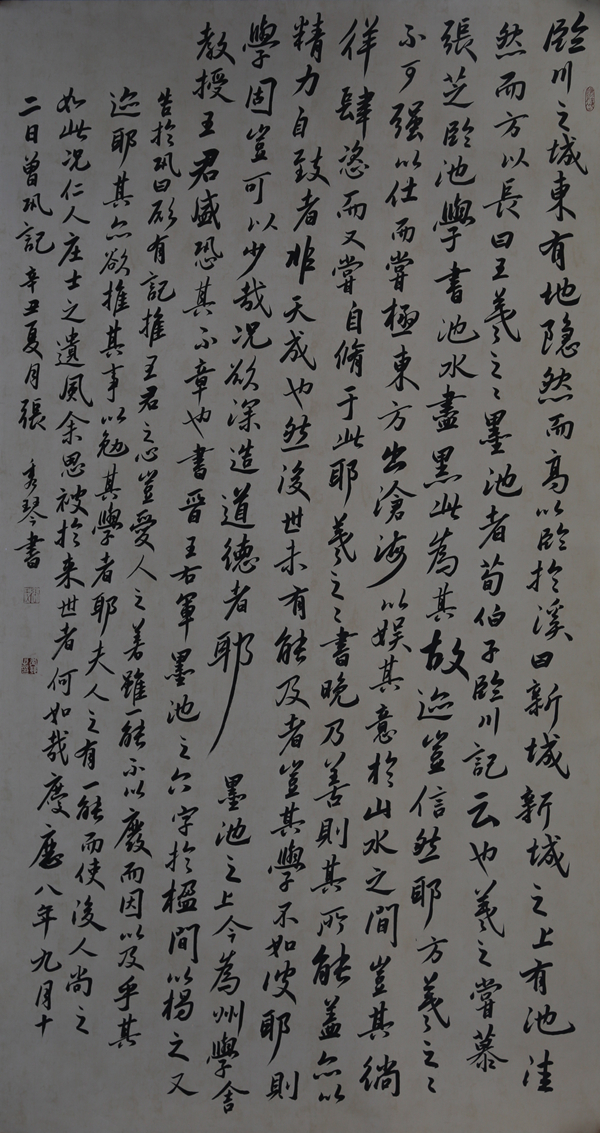 臨川之城東有地隐然而高以臨於溪曰新城新城之上有池洼
然而方以長曰王羲之之墨池者荀伯子臨川記云也羲之嘗慕
張芝臨池學書池水盡黑此為其故迹豈信然耶方羲之之
不可强以仕而嘗極東方出滄海以娱其意於山水之間豈其徜
徉肆恣而又嘗自脩于此耶羲之之書晚乃善則其所能蓋亦以
精力自致者非天成也然後世未有能及者豈其學不如彼耶則
學固豈可以少哉况欲深造道德者耶 墨池之上今為州學舍
教授王君盛恐其不章也書晋王右軍墨池之六字於楹間以揭之又
告於巩曰願有記推王君之心豈愛人之善雖一能不以廢而因以及乎其
迹耶其亦欲推其事以勉其學者耶夫人之有一能而使後人尚之
如此况仁人庄士之遺風余思被於来世者何如哉慶曆八年九月十
二日曾巩記 辛丑夏月張秀琴書